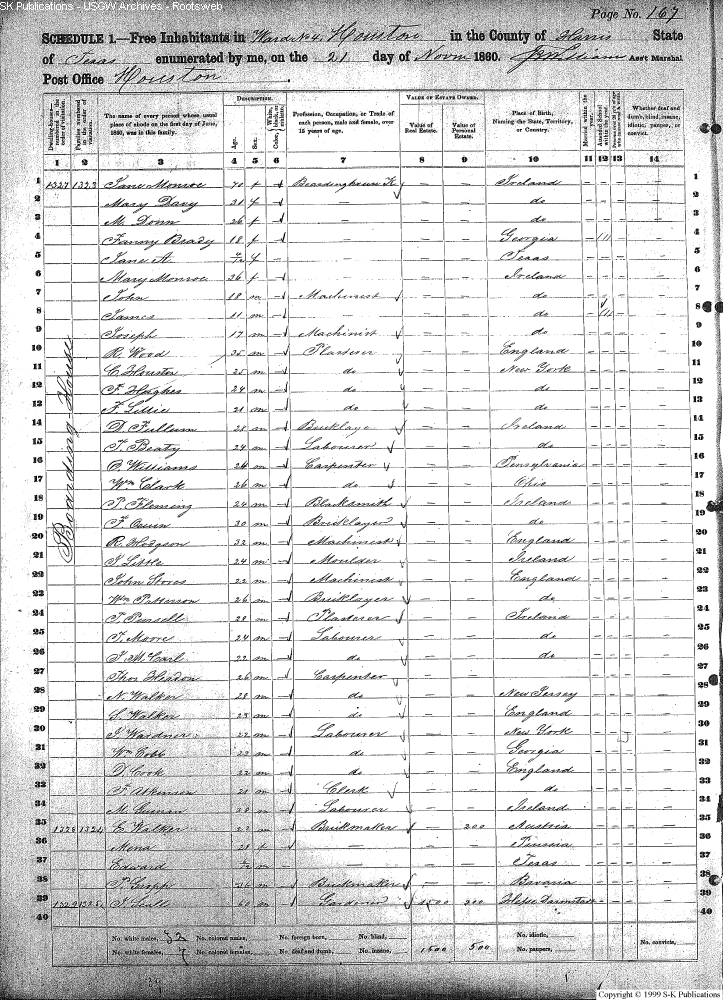 S-K Publications - USGW Archives - Rootsweb
Page No. 167
SCHEDULE 1.—Free Inhabitants in Ward No 4, Houston in the County of Harris State
of Texas enumerated by me, on the 21 day of Novm 1860. Ass't Marshal
Post Office Houston.
DESCRIPTION. VALUE OF ESTATE OWNED.
Dwelling-houses numbered in the order of visitation. Families numbered in the order of visitation. The name of every person whose usual place of abode on the first day of June, 1860, was in this family. Age. Sex. Color, White, black, or mulatto. Profession, Occupation, or Trade of each person, male and female, over 15 years of age. Value of Real Estate. Value of Personal Estate. Place of Birth, Naming the State, Territory, or Country. Married within the year. Attended School within the year. Whether deaf and dumb, blind, insane, idiotic, pauper, or convict.
1 2 3 4 5 6 7 8 9 10 11 12 13 14
1 1327 1323 Jane Monroe 70 f Boardinghouse K Ireland 1
2 Mary Davy 31 f — do 2
3 M. Donn 26 f — do 3
4 Fanny Beady 18 f — Georgia 4
5 Jane A. f — Texas 5
6 Mary Monroe 26 f — Ireland 6
7 John 18 m Machinist do 7
8 James 11 m — do 8
9 Joseph 17 m Machinist do 9
10 R. Wood 35 m Plasterer England 10
11 C. Houston 25 m do New York 11
12 F. Hughes 24 m do do 12
13 F. Lillie 21 m do do 13
14 D. Fullum 28 m Bricklayer Ireland 14
15 T. Beaty 24 m Labourer do 15
16 O. Williams 24 m Carpenter Pensylvania 16
17 Wm Clark 26 m do Ohio 17
18 P. Fleming 24 m Blacksmith Ireland 18
19 30 m Bricklayer do 19
20 R. Hodgson 32 m Machinist England 20
21 J. Little 24 m Moulder Ireland 21
22 John Stores 22 m Machinist England 22
23 Wm Patterson 26 m Bricklayer do 23
24 T. Pursell 28 m Plasterer Ireland 24
25 T. Moore 24 m Labourer do 25
26 J. McCarl 22 m do do 26
27 Thos Headon 26 m Carpenter 27
28 N. Walker 28 m do New Jersey 28
29 S. Walker 25 m do England 29
30 J. Wardner 22 m Labourer New York 30
31 Wm Cobb 22 m do Georgia 31
32 D. Cook 22 m do England 32
33 F. Atkinson 21 m Clerk do 33
34 M. 28 m Labourer Ireland 34
35 1328 1324 E. Walker 27 m Brickmaker 200 Austria 35
36 Mena 21 f — 36
37 Edward m — Texas 37
38 P. 36 m Brickmaker Bavaria 38
39 1329 1325 J. 60 m Gardener 1500 300 Hesse Darmstadt 39
40 40
Boarding House
No. white males, 32 No. colored males, No. foreign born, No. blind, No. idiotic, No. convicts,
No. white females, 7 No. colored females, No. deaf and dumb, No. insane, 1500 500 No. paupers,
Copyright © 1999 S-K Publications